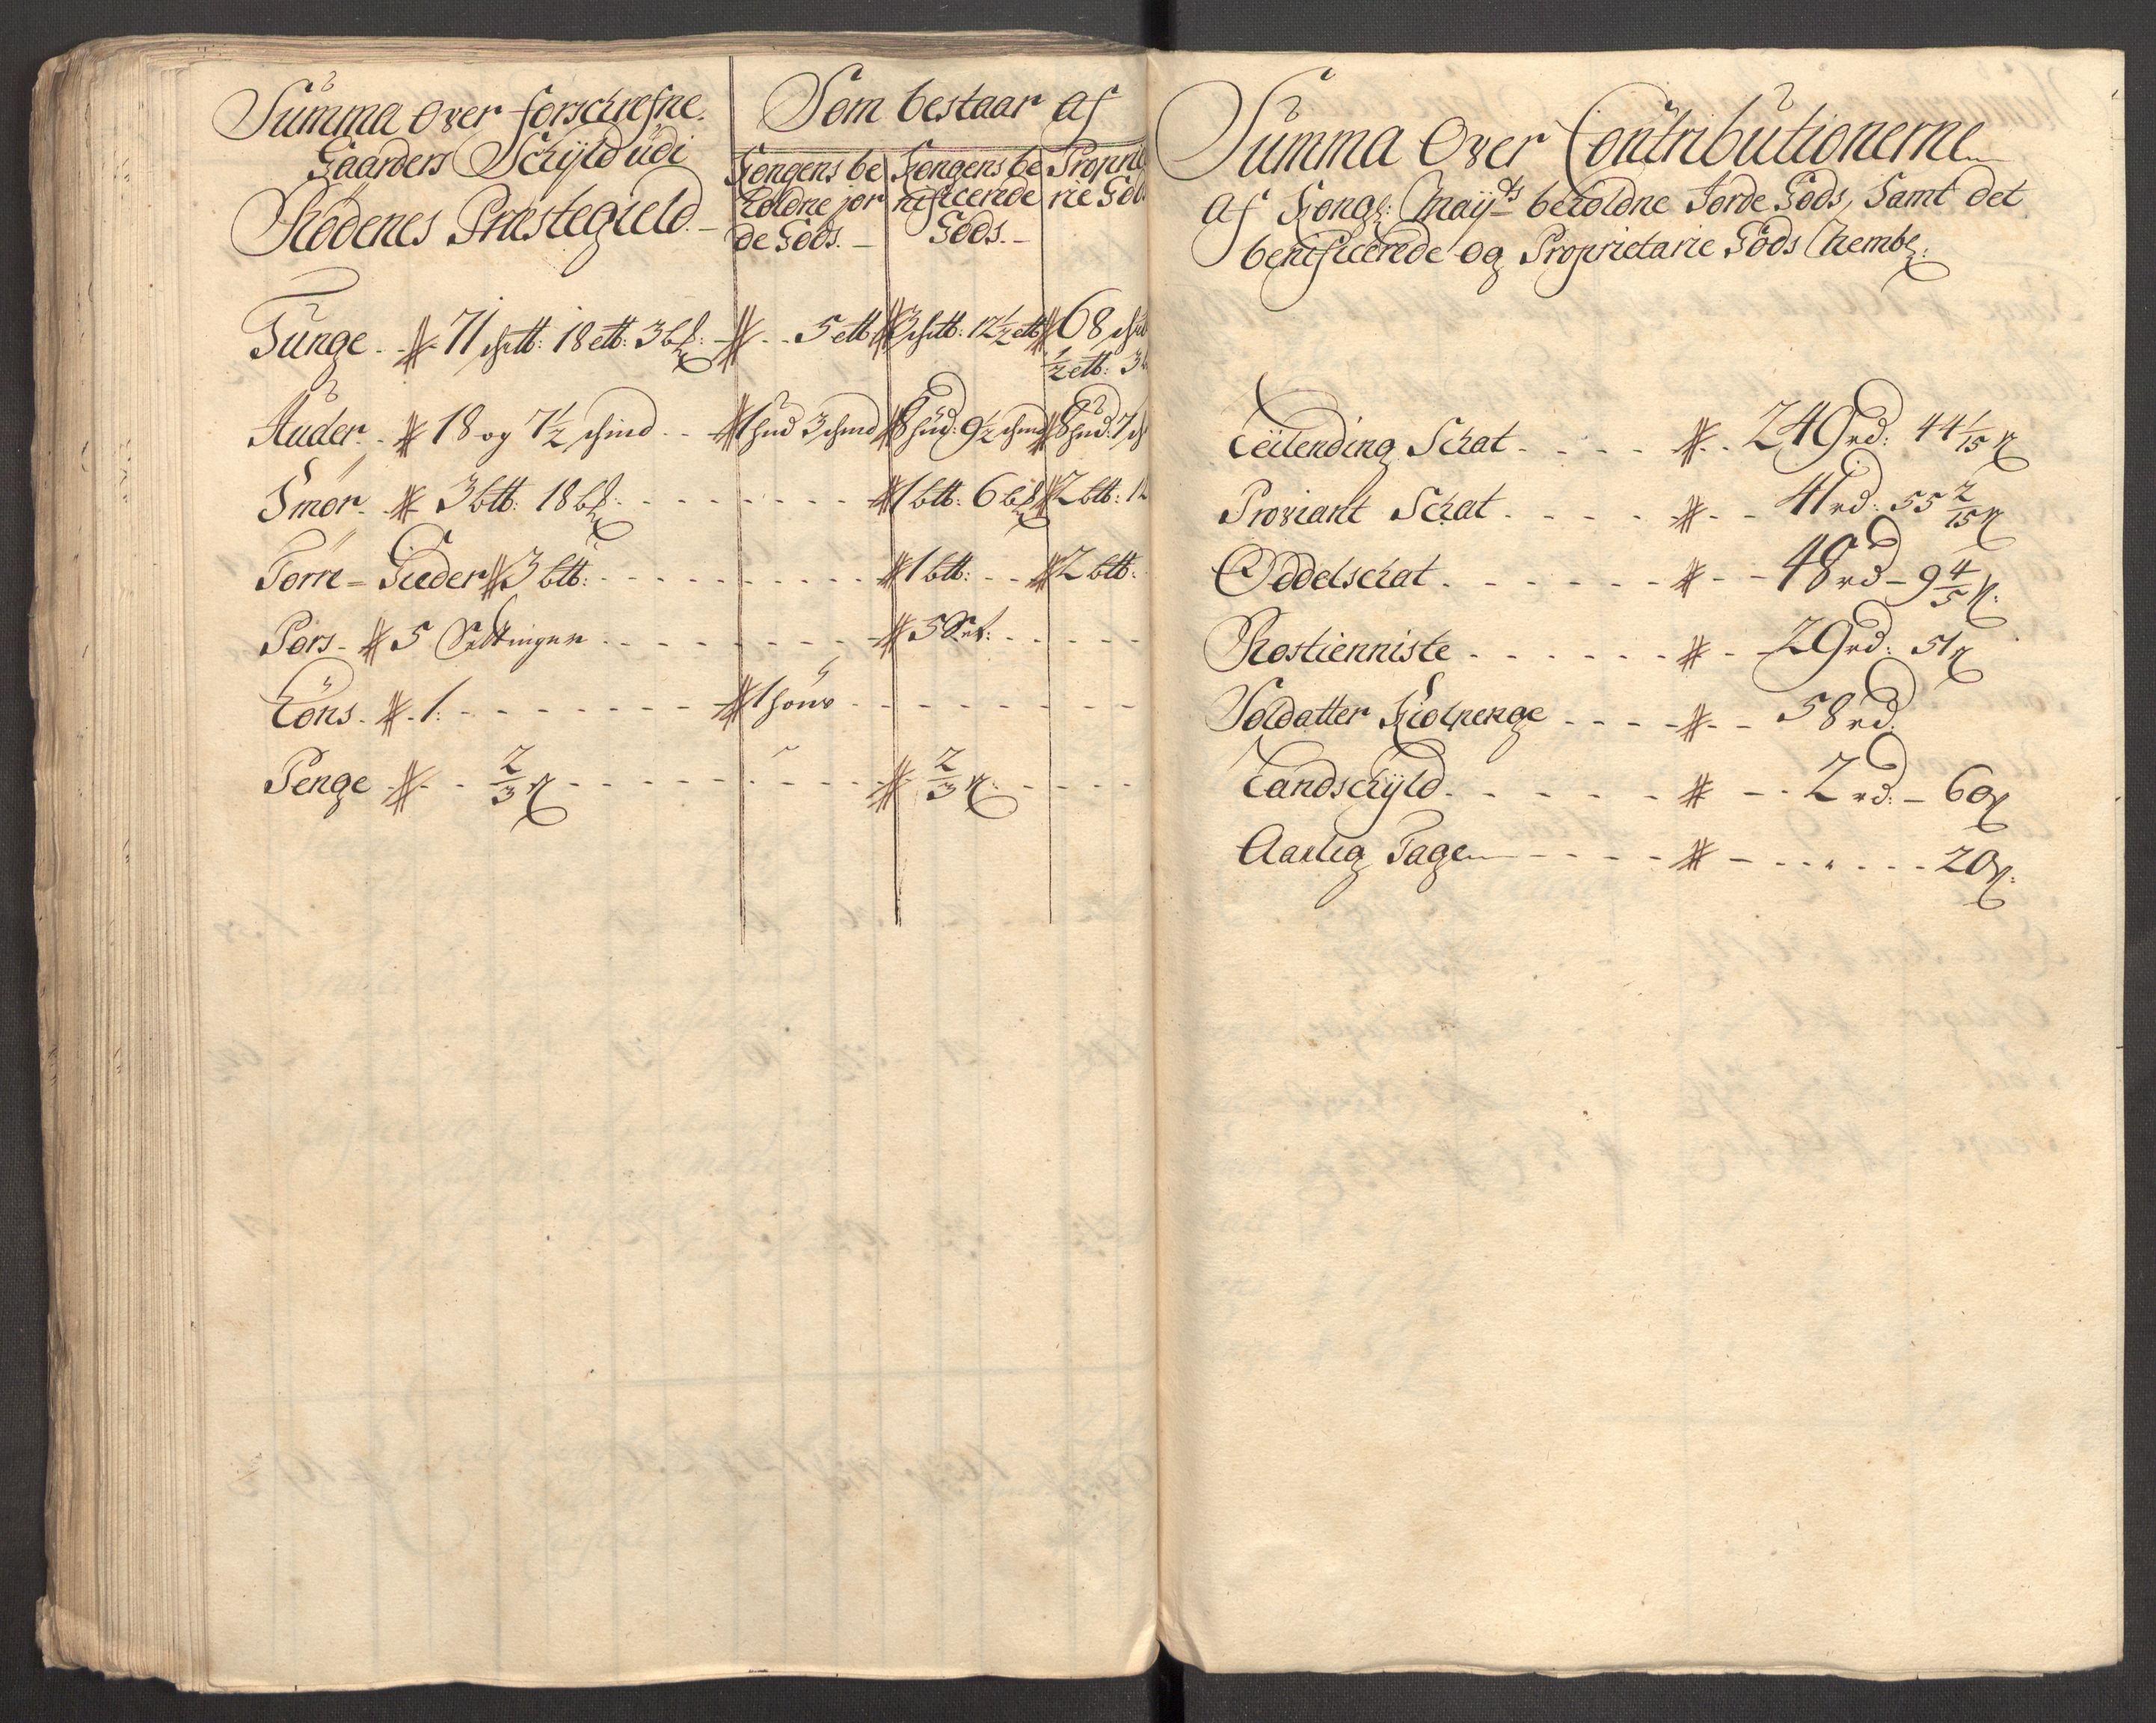 Summa Over forschrefne
Gaarders Schÿld udi
Rödenes Præstegield.
Som bestaar af
Kongens be
holdne jor
de Gods.
Kongens be
nificerede
Gods.
Proprie
rie God
Tunge # 71 schtt: 18 ett: 3 bf: # 5 ett # 3 schtt: 12½ ett # 68 sch
½ ett: 3
Huder # 18 og 7½ schind # 1 hud 3 schind # 8 hud: 9½ schind # 8 hud: 7 sch
Smör # 3 btt: 18 bf: # 1 btt: 6 bf # 2 btt: 12
Törre-Gieder # 3 btt: # 1 btt: # 2 btt:
Pors # 5 Settinger # 5 Set:
Höns # 1: # 1 höns
Penge # 2/3 # 2/3
Summa Over Contributionerne
af Kongl: Maÿts beholdne Jorde Gods, Samt det
benificerede og Proprietarie Gods Nembl:
Leilending Schat # 249 rd: 44 1/15
Proviant Schat # 41 rd: 55 2/15
Oddelschat # 48 rd - 9 4/5
Rostienniste # 29 rd: 51
Soldatter Kiolpenge # 58 rd:
Landschÿld # 2 rd: 60
Aarlig Tage # 20